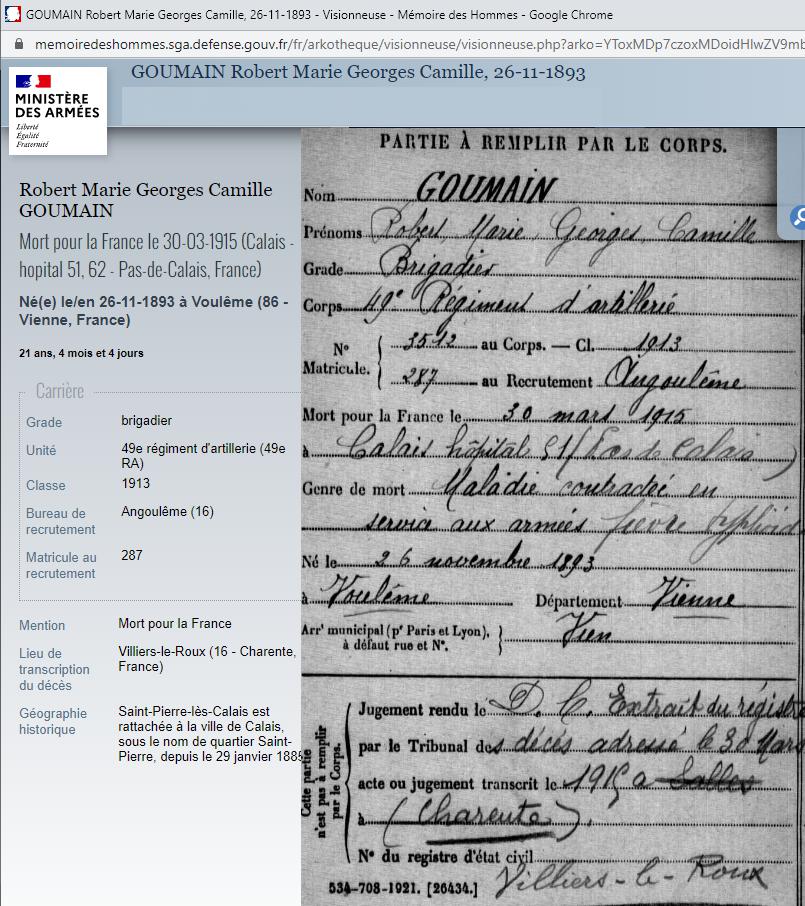 GOUMAIN Robert Marie Georges Camille, 26-11-1893 - Visionneuse - Mémoire des Hommes - Google Chrome
memoiredeshommes.sga.defense.gouv.fr/fr/arkotheque/visionneuse/visionneuse.php?arko=YToxMDp7czoxMDoidHlwZV9mb
GOUMAIN Robert Marie Georges Camille, 26-11-1893
MINISTÈRE
DES ARMÉES
Liberté
Égalité
Fraternité
Robert Marie Georges Camille
GOUMAIN
Mort pour la France le 30-03-1915 (Calais -
hopital 51, 62 - Pas-de-Calais, France)
Né(e) le/en 26-11-1893 à Voulême (86 -
Vienne, France)
21 ans, 4 mois et 4 jours
Carrière
Grade brigadier
Unité 49e régiment d'artillerie (49e
RA)
Classe 1913
Bureau de
recrutement Angoulême (16)
Matricule au
recrutement 287
Mention Mort pour la France
Lieu de
transcription
du décès Villiers-le-Roux (16 - Charente,
France)
Géographie
historique Saint-Pierre-lès-Calais est
rattachée à la ville de Calais,
sous le nom de quartier Saint-
Pierre, depuis le 29 janvier 1885
PARTIE À REMPLIR PAR LE CORPS.
Nom GOUMAIN
Prénoms Robert Marie Georges Camille
Grade Brigadier
Corps 49e Régiment d'artillerie
N°
Matricule.
3512 au Corps. — Cl. 1913
287 au Recrutement Angoulême
Mort pour la France le 30 mars 1915
à Calais hôpital 51 (Pas de Calais)
Genre de mort Maladie contractée en
service aux armées fièvre typhoïd
Né le 26 novembre 1893
à Voulême Département Vienne
Arrt municipal (pr Paris et Lyon),
à défaut rue et N°.
Vien
Cette partie
n'est pas à remplir
par le Corps.
Jugement rendu le D. C. Extrait du régistre
par le Tribunal des décès adressé le 30 Mars
acte ou jugement transcrit le 1915 a
à (Charente).
N° du registre d'état civil
Villiers-le-Roux
534-708-1921. [26434.]